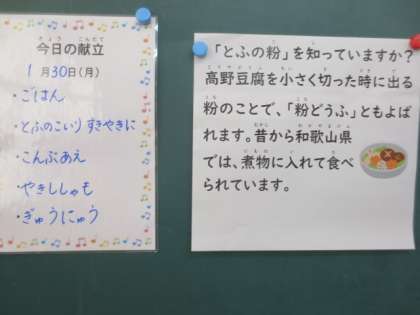 今日の献立
1月30日(月)
・ごはん
・とふのこいりすきやきに
・こんぶあえ
・やきししゃも
・ぎゅうにゅう
「とふの粉」を知っていますか?
高野豆腐を小さく切った時に出る
粉のことで、「粉どうふ」ともよば
れます。昔から和歌山県
では、煮物に入れて食べ
られています。